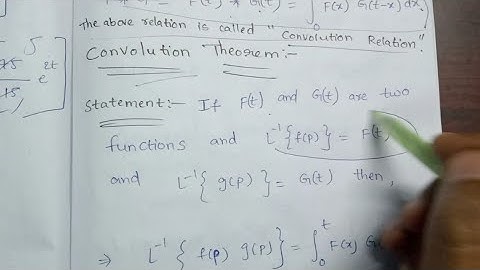 F(t) * G(t) = ∫₀ F(x) G(t-x) dx.
The above relation is called "Convolution Relation".
5
e^2t
Convolution Theorem:-
Statement:- If F(t) and G(t) are two
functions and L⁻¹{f(p)} = F(t)
and L⁻¹{g(p)} = G(t) then,
⇒ L⁻¹{f(p) g(p)} = ∫₀ᵗ F(x) G